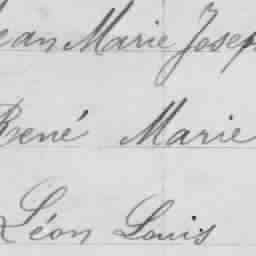 Jean Marie Joseph
René Marie
Léon Louis